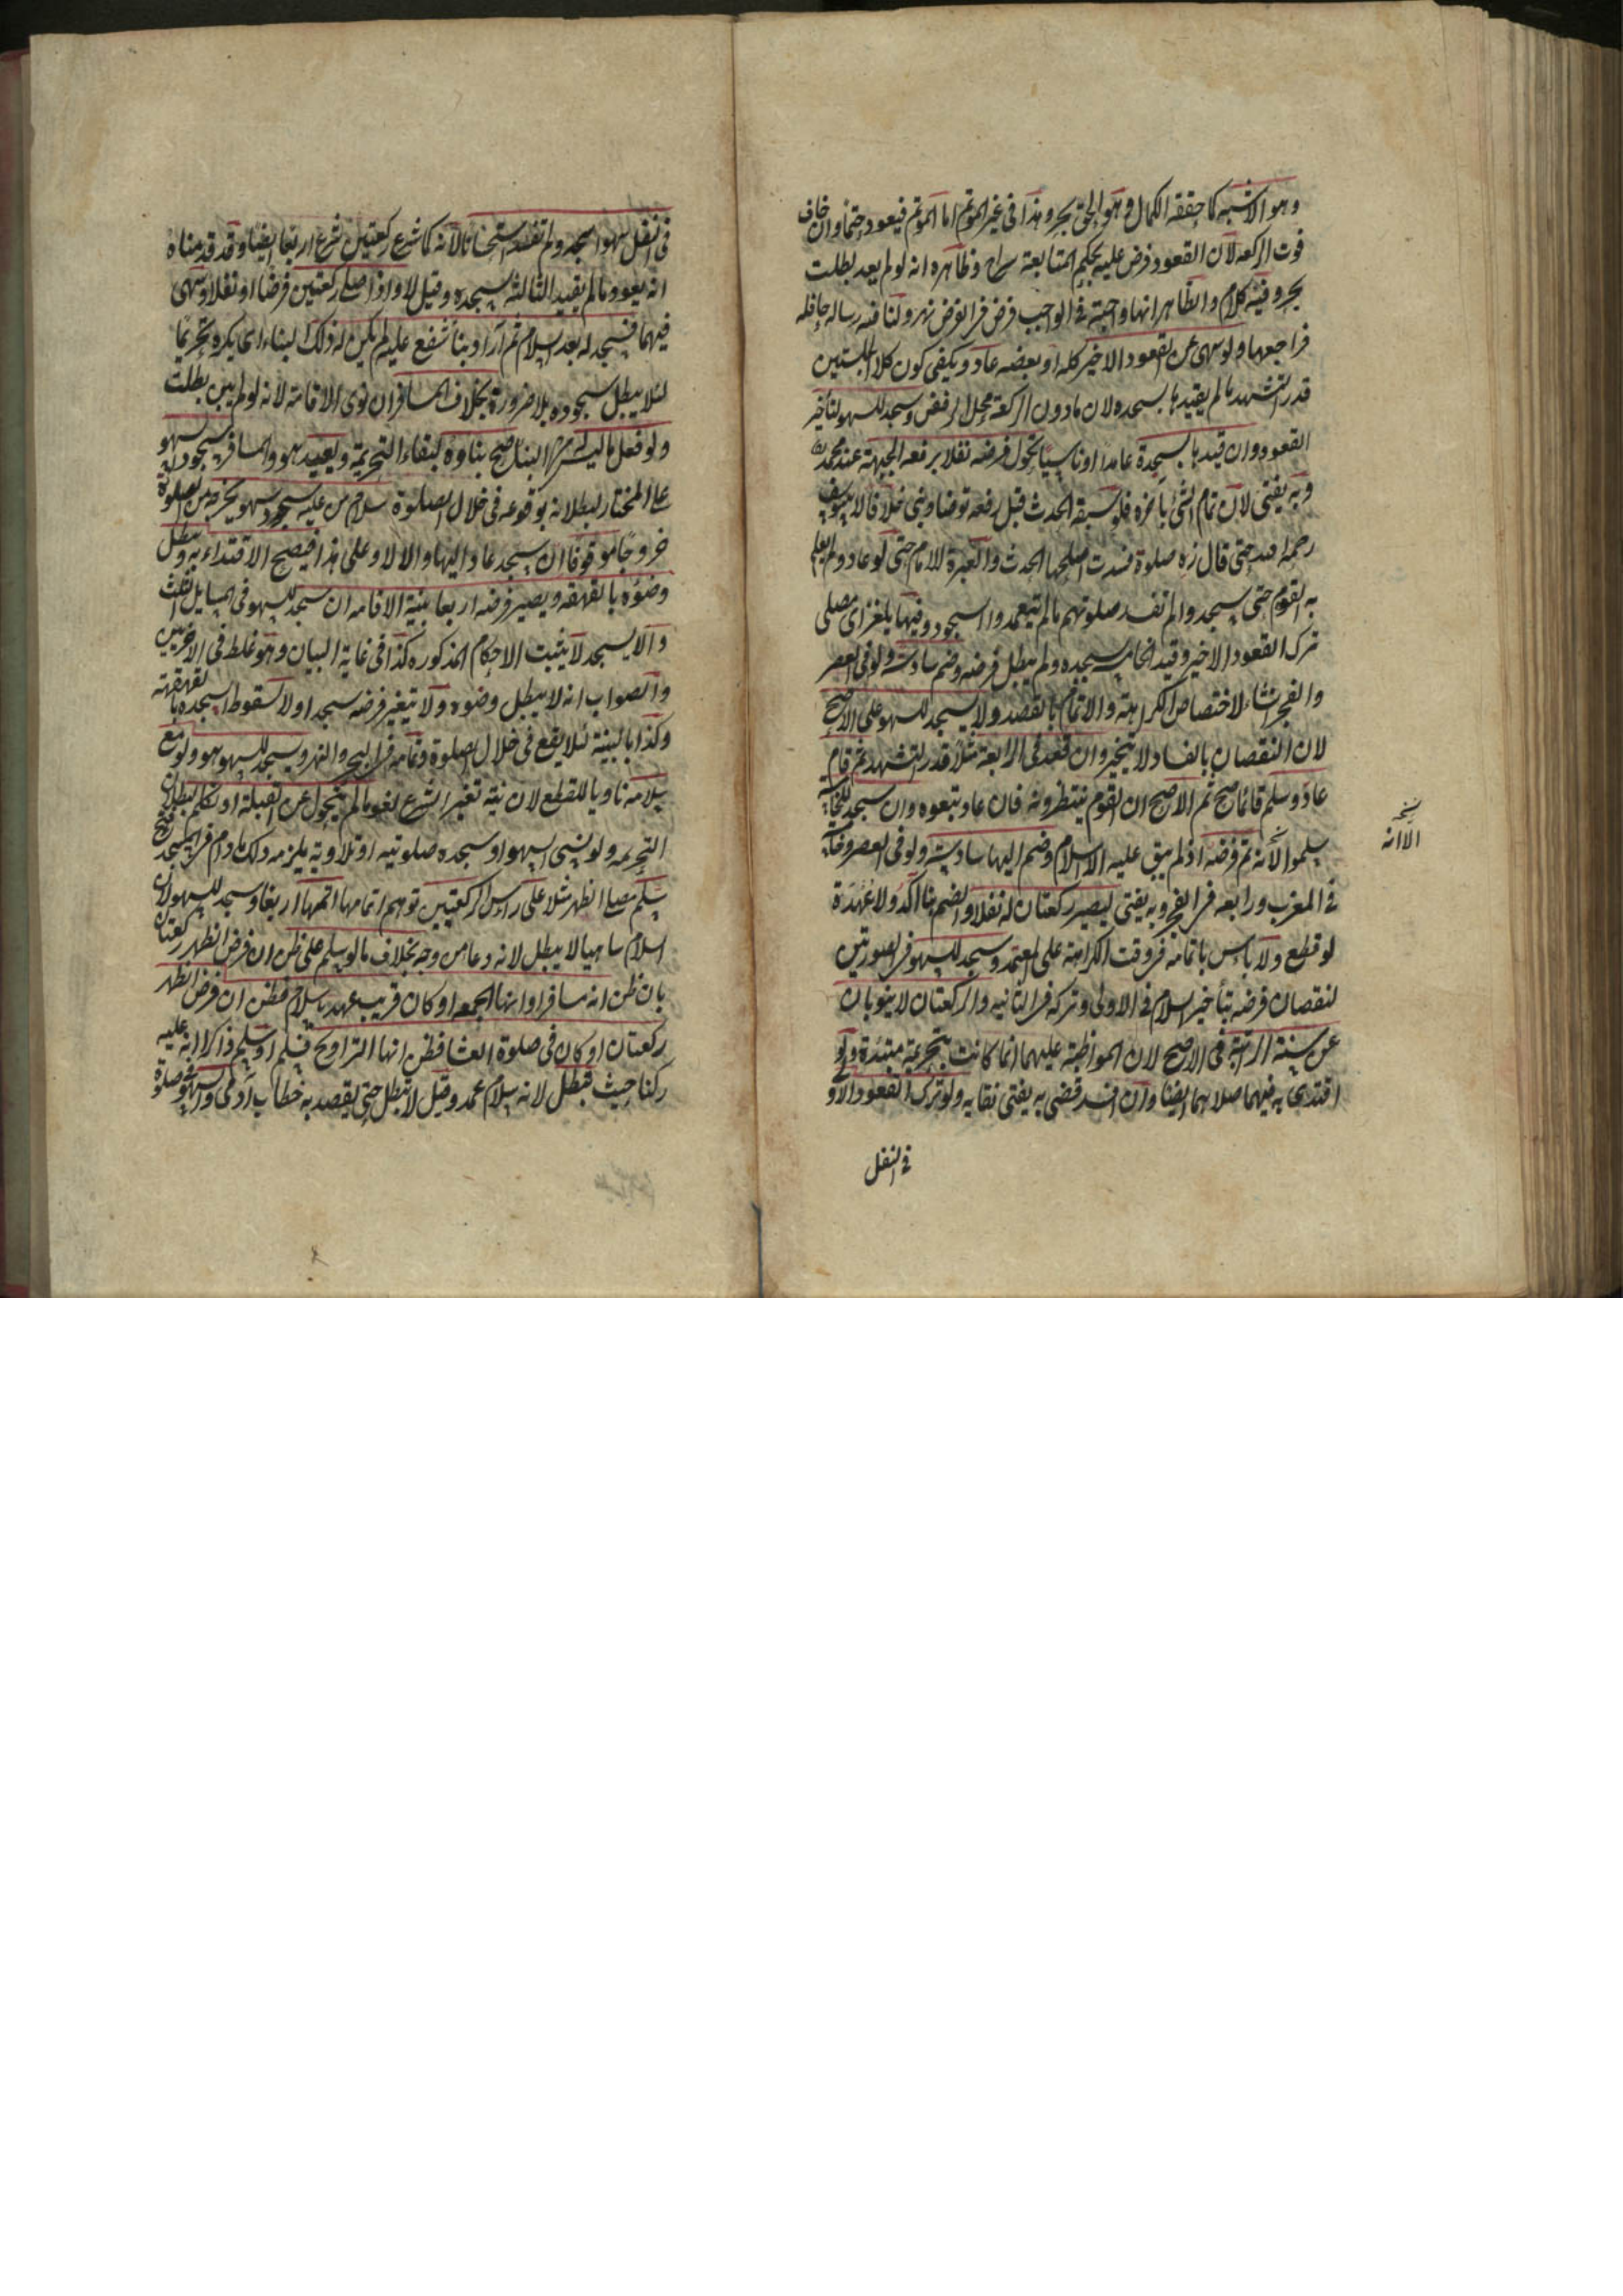 وهو الاشبه كما حققه الكمال وهو الحق بحر وهذا في غير المؤتم اما المؤتم فيعود حتما وان خاف
فوت الركعه لان القعود فرض عليه بحكم المتابعة سراج وظاهره انه لو لم يعد بطلت
بحر وفيه كلام والظاهر انها واجبة في الواجب فرض في الفرض نهر ولنا فيه رساله حافله
فراجعها ولو سهى عن القعود الاخير كله او بعضه عاد ويكفى كون كلا الجلستين
قدر التشهد ما لم يقيدها بسجده لان ما دون الركعة محل الرفض وسجد للسهو لتاخير
القعود وان قيدها بسجدة عامدا او ناسيا تحول فرضه نفلا برفعه الجبهة عند محمد
وبه يفتى لان تمام الشئ باخره فلو سبقه الحدث قبل رفعه توضا وبنى خلافا لابى يوسف
رحمه الله حتى قال زه صلوة فسدت اصلحها الحدث والعبرة للامام حتى لو عاد ولم يعلم
به القوم حتى سجدوا لم تفسد صلوتهم ما لم يتعمدوا السجود وفيها يلغز اى مصلى
ترك القعود الاخير وقيد الخامسه بسجده ولم يبطل فرضه وضم سادسة ولو فى العصر
والفجر ان شاء لاختصاص الكراهة والاتمام بالقصد ولا يسجد للسهو على الاصح
لان النقصان بالفساد لا ينجبر وان قعد فى الرابعة مثلا قدر التشهد ثم قام
عاد وسلم قائما صح ثم الاصح ان القوم ينتظرونه فان عاد تبعوه وان سجد للخامسه
سلموا لانه تم فرضه اذ لم يبق عليه الا السلام وضم اليها سادسة ولو فى العصر وخامسه
فى المغرب ورابعه فى الفجر وبه يفتى ليصير ركعتان له نفلا والضم هنا اكد ولا عهدة
لو قطع ولا باس باتمامه فى وقت الكراهة على المعتمد وسجد للسهو فى الصورتين
لنقصان فرضه بتاخير السلام فى الاولى وتركه فى الثانيه والركعتان لا ينوبان
عن السنة الراتبة فى الاصح لان المواظبة عليهما انما كانت بتحريمة مبتدءة ولو
اقتدى به فيهما صلاهما ايضا وان افسد قضى به يفتى نقايه ولو ترك القعود الاول
نسخه
الا انه
فى النفل
فى النفل سهوا سجد ولم تفسد استحسانا لانه كما شرع ركعتين شرع اربعا ايضا وقد قدمناه
انه يعود ما لم يقيد الثالثة بسجده وقيل لا واذا صلى ركعتين فرضا او نفلا وسهى
فيهما فسجد له بعد السلام ثم اراد بناء شفع عليه لم يكن له ذلك البناء اى يكره تحريما
لئلا يبطل سجوده بلا ضرورة بخلاف المسافر ان نوى الاقامة لانه لو لم يبن بطلت
ولو فعل ما ليس له من البناء صح بناوه لبقاء التحريمة ويعيد هو والمسافر سجود السهو
على المختار لبطلانه بوقوعه فى خلال الصلوة سلام من عليه سجود سهو يخرجه من الصلوة
خروجا موقوفا ان سجد عاد اليها والا لا وعلى هذا فيصح الاقتداء به ويبطل
وضوه بالقهقهه ويصير فرضه اربعا بنية الاقامه ان سجد للسهو فى المسايل الثلث
والا يسجد لا يثبت الاحكام المذكوره كذا فى غاية البيان وهو غلط فى الاخريين
والصواب انه لا يبطل وضوه ولا يتغير فرضه سجد او لا لسقوط السجده بالقهقهة
وكذا بالنية لئلا يقع فى خلال الصلوة وتمامه فى البحر والنهر ويسجد للسهو هو ولو مع
سلامه ناويا للقطع لان نية تغير الشرع لغو ما لم يتحول عن القبلة او يتكلم لبطلان
التحريمه ولو نسى السهو او سجده صلوتيه او تلاوية يلزمه ذلك ما دام فى المسجد
سلم مصلى الظهر مثلا على راس الركعتين توهم اتمامها اتمها اربعا وسجد للسهو لان
السلام ساهيا لا يبطل لانه دعا من وجه بخلاف ما لو سلم على ظن ان فرض الظهر ركعتان
بان ظن انه مسافرا وانها الجمعه او كان قريب عهد بالاسلام فظن ان فرض الظهر
ركعتان او كان فى صلوة العشا فظن انها التراويح فسلم او سلم ذاكرا ان عليه
ركنا حيث تبطل لانه سلام عمد وقيل لا تبطل حتى يقصد به خطاب آدمى والسهو فى صلوة